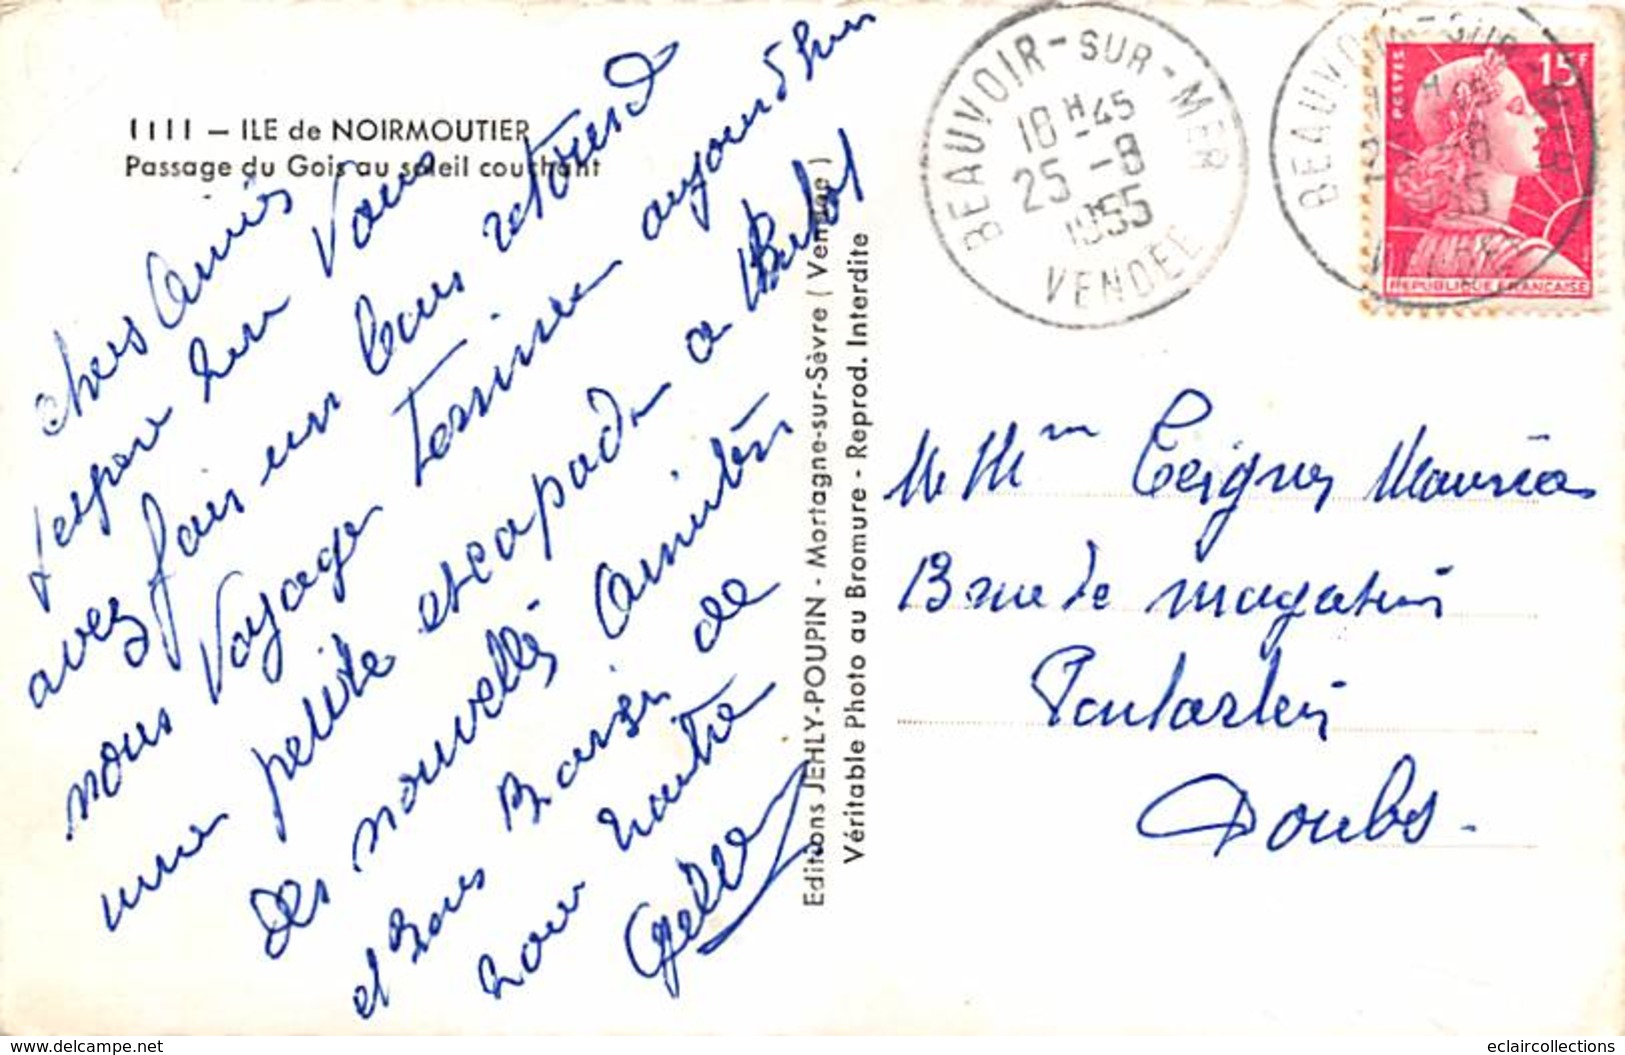 1111 — ILE de NOIRMOUTIER
Passage du Gois au soleil couchant
chers Amis
J'espere bien Vous
avez fais un bons retourd
nous Voyage termine aujourdhui
une petite escapade a
des nouvelles Amitiés
et bons Baiser de
pour
Editions JEHLY-POUPIN - Mortagne-sur-Sèvre ( Vendée )
Véritable Photo au Bromure - Reprod. Interdite
BEAUVOIR-SUR-MER
18H45
25-8
1955
VENDÉE
BEAUVOIR-SUR-MER
POSTES
15F
REPUBLIQUE FRANÇAISE
M Mm
B rue de magasin
Pontarlier
Doubs.
www.delcampe.net
eclaircollections